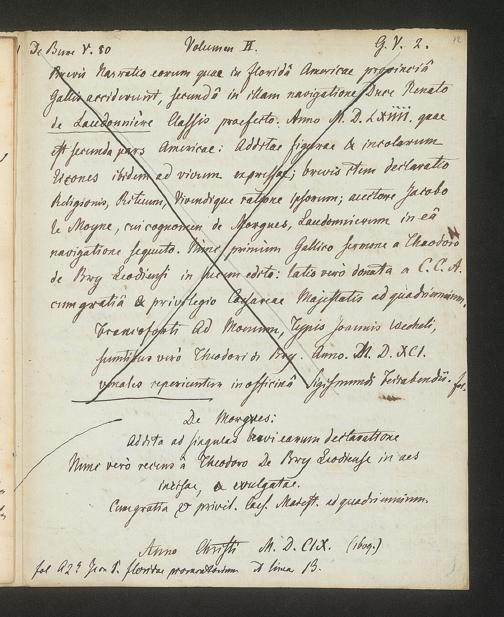 De Bure V. 80 Volumen II. G. V. 2. 12
Brevis Narratio eorum quae in Floridâ Americae provinciâ
Gallis acciderunt, secundâ in illam navigatione Duce Renato
de Laudonnière Classis praefecto. Anno M. D. LXIIII. quae
est secunda pars Americae: Additae figurae & incolarum
Eicones ibidem ad vivum expressae; brevis item declaratio
Religionis, Rituum, Vivendique ratione ipsorum; auctore Jacobo
le Moyne, cui cognomen de Morgues, Laudonnierum in eâ
navigatione sequuto. Nunc primùm Gallico sermone a Theodoro
de Bry Leodiensi in lucem edito: latio verò donata a C. C. A.
cum gratiâ & privilegio Caesareae Majestatis ad quadriennium.
Francoforti Ad Moenum, Typis Joannis Wecheli,
sumtibus verò Theodori de Bry. Anno. M. D. XCI.
venales reperiuntur in officinâ Sigismundi Feirabendii. fol.
De Morgues:
Addita ad singulas brevi earum declaratione
Nunc verò recens a Theodoro De Bry Leodiense in aes
incisae, & evulgatae.
Cum gratia & privil. Caes. Majest. ad quadriennium.
Anno Christi M. D. CIX. (1609.)
fol A2 Floridae linea 13.